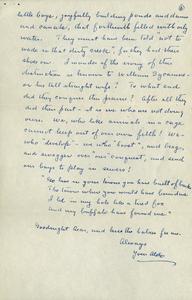 6
little boys, joyfully building ponds and dams
and canals, that forthwith filled with oily
water. "They must have been told not to
wade in that dirty creek", for they had their
shoes on. I wonder if the irony of this
distinction is known to William
or his tall dough wife? To what end
did they conquer the prairie? After all they
did their part - it is we who are not doing
ours. We, who like animals in a cage
cannot keep out of our own filth! We -
who 'develop' - we who 'boost', and brag,
and swagger over 'our' conquest, and send
our boys to play in sewers!
"Go live in your towns you have built of
Who knows when you would have found me
I lie in my hole like a
and my buffalo have found me"
Goodnight dear, and kiss the babies for me.
Always
Your Aldo